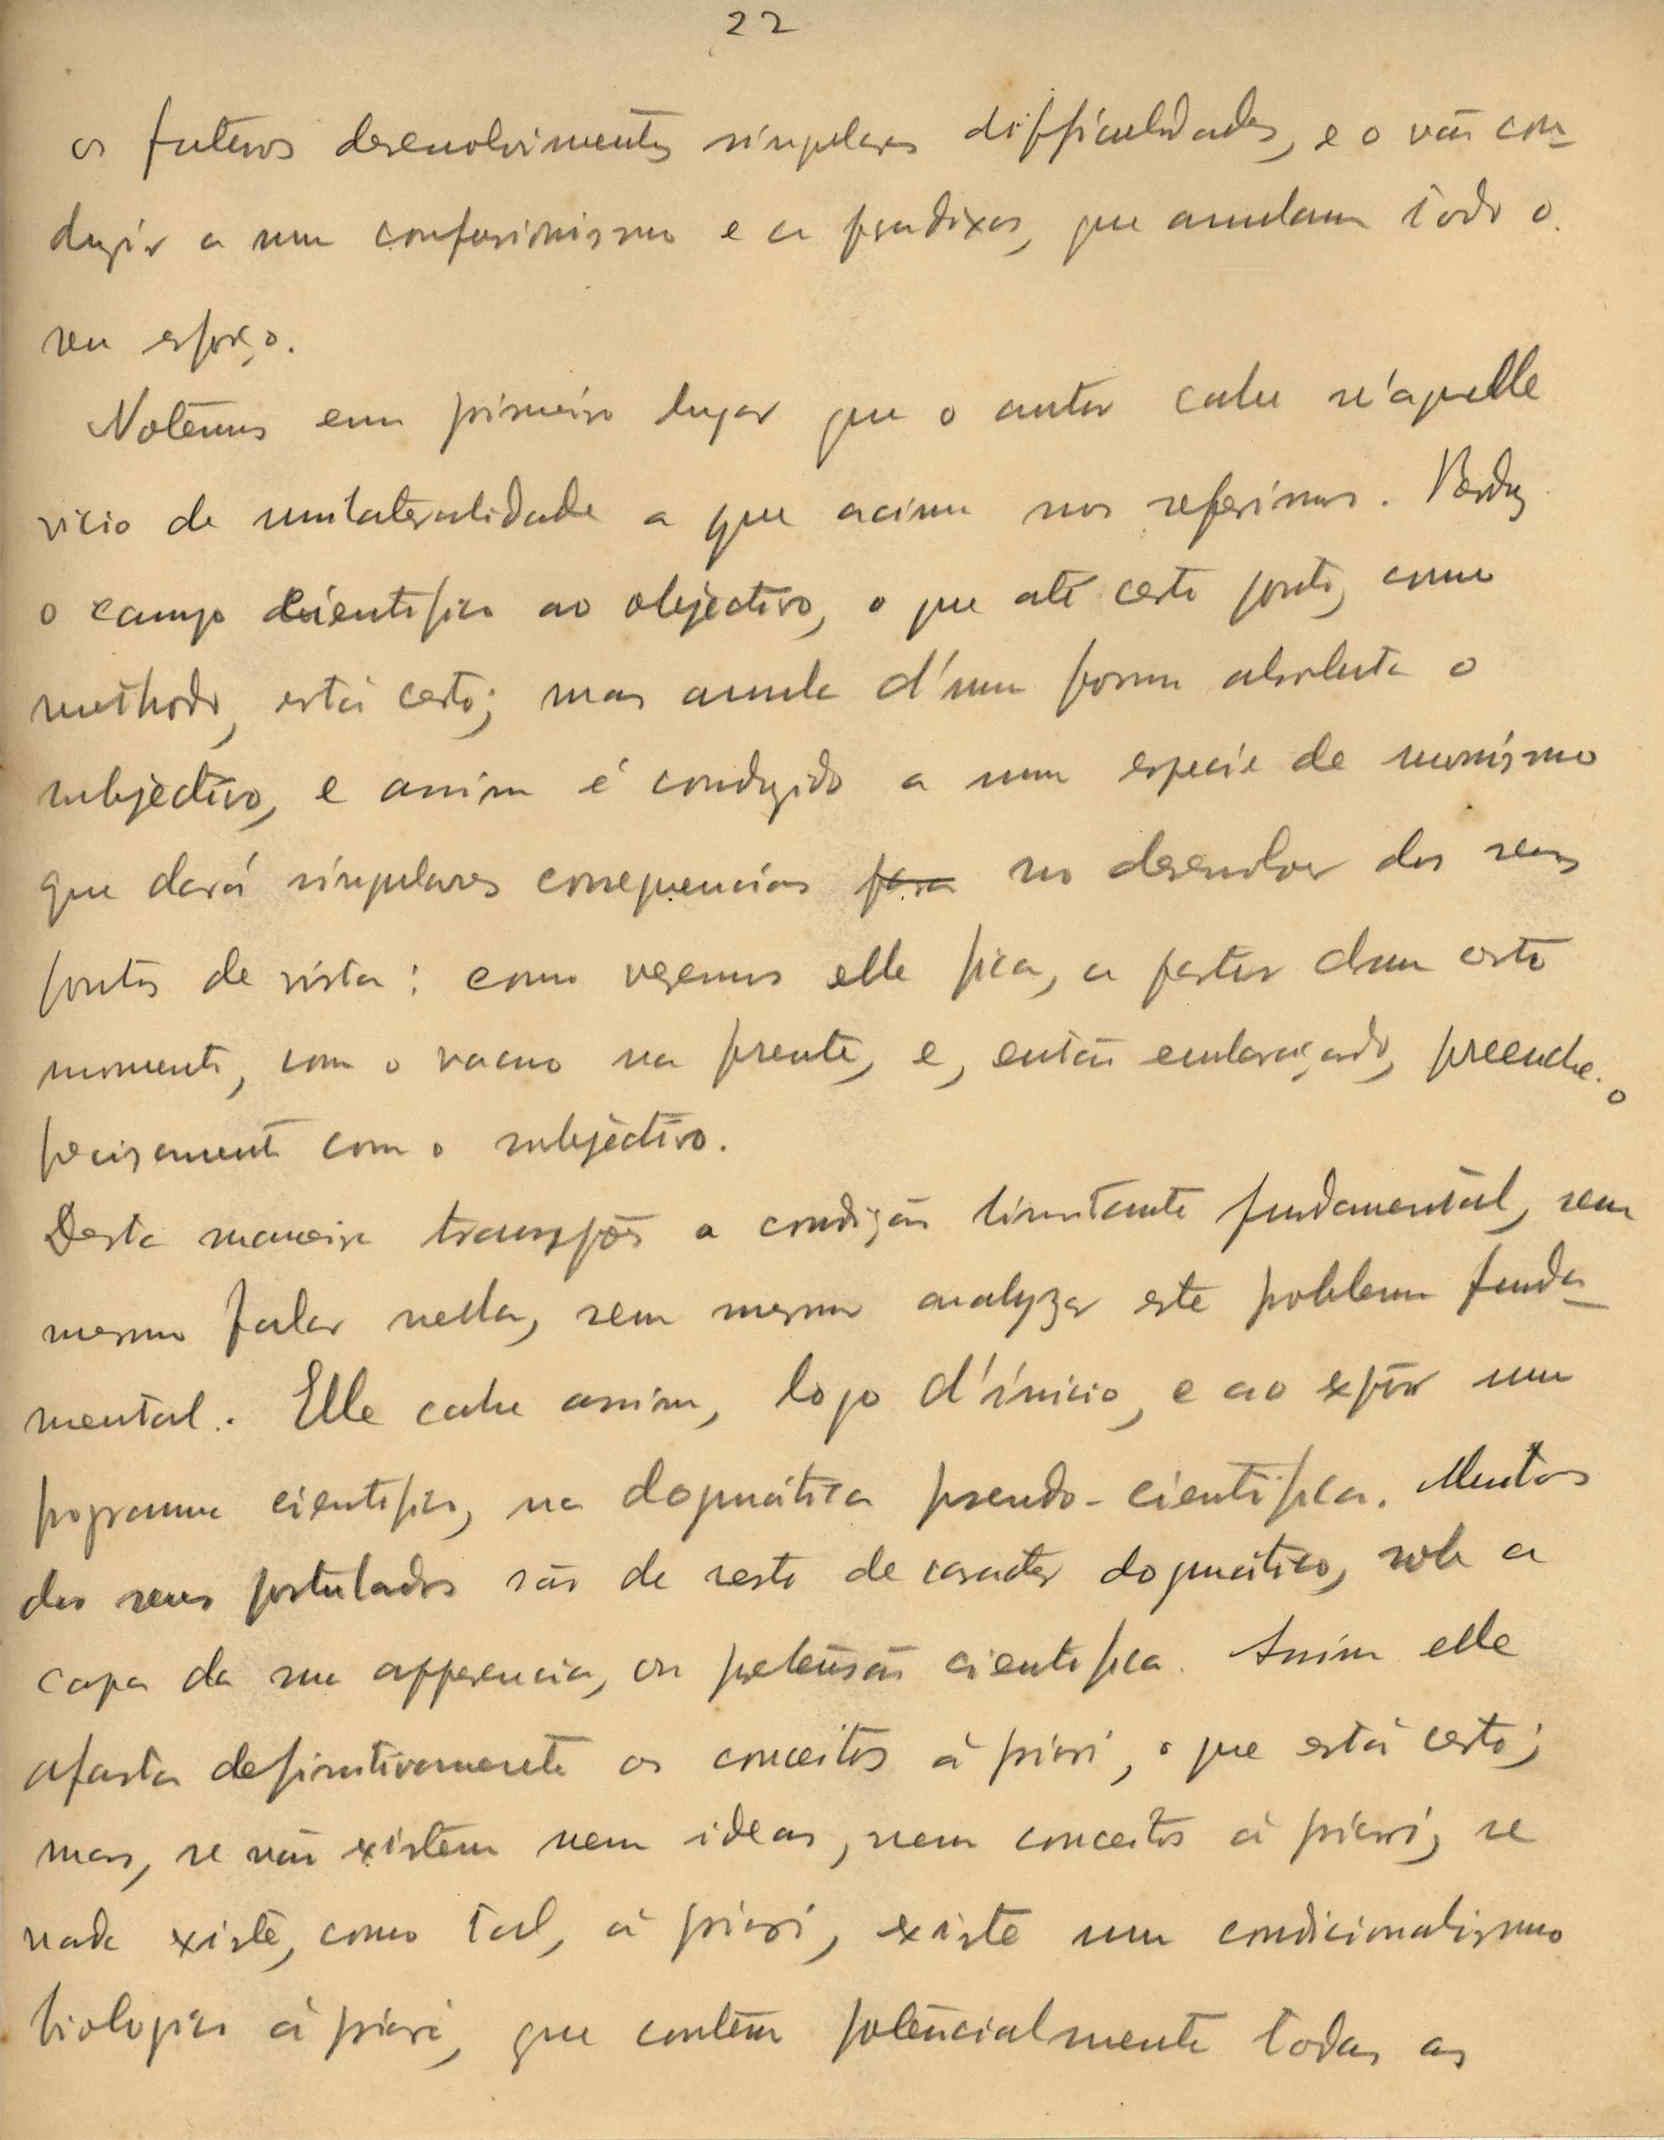 22
os futuros desenvolvimentos singulares difficuldades, e o vão con-
duzir a um confusionismo e a paradoxos, que anulam todo o
seu esforço.
Notemos em primeiro lugar que o autor cahe n'aquelle
vicio de unilateralidade a que acima nos referimos. Reduz
o campo cientifico ao objectivo, o que até certo ponto, como
methodo, está certo; mas anula d'uma forma absoluta o
subjectivo, e assim é conduzido a uma especie de monismo
que dará singulares consequencias para no desenvolver dos seus
pontos de vista: como veremos elle fica, a partir dum certo
momento, com o vacuo na frente, e, então embaraçado, preenche-o
precisamente com o subjectivo.
Desta maneira transpõe a condição limitante fundamental, sem
mesmo falar nella, sem mesmo analyzar este problema funda-
mental. Elle cahe assim, logo d'ínicio, e ao expôr um
programa cientifico, na dogmática pseudo-cientifica. Muitos
dos seus postulados são de resto de caracter dogmático, sob a
capa da sua apparencia, ou pretensão cientifica. Assim elle
afasta definitivamente os conceitos à priori, o que está certo;
mas, se não existem nem ideas, nem conceitos à priori, se
nada existe, como tal, à priori, existe um condicionalismo
biologico à priori, que contém potencialmente todas as